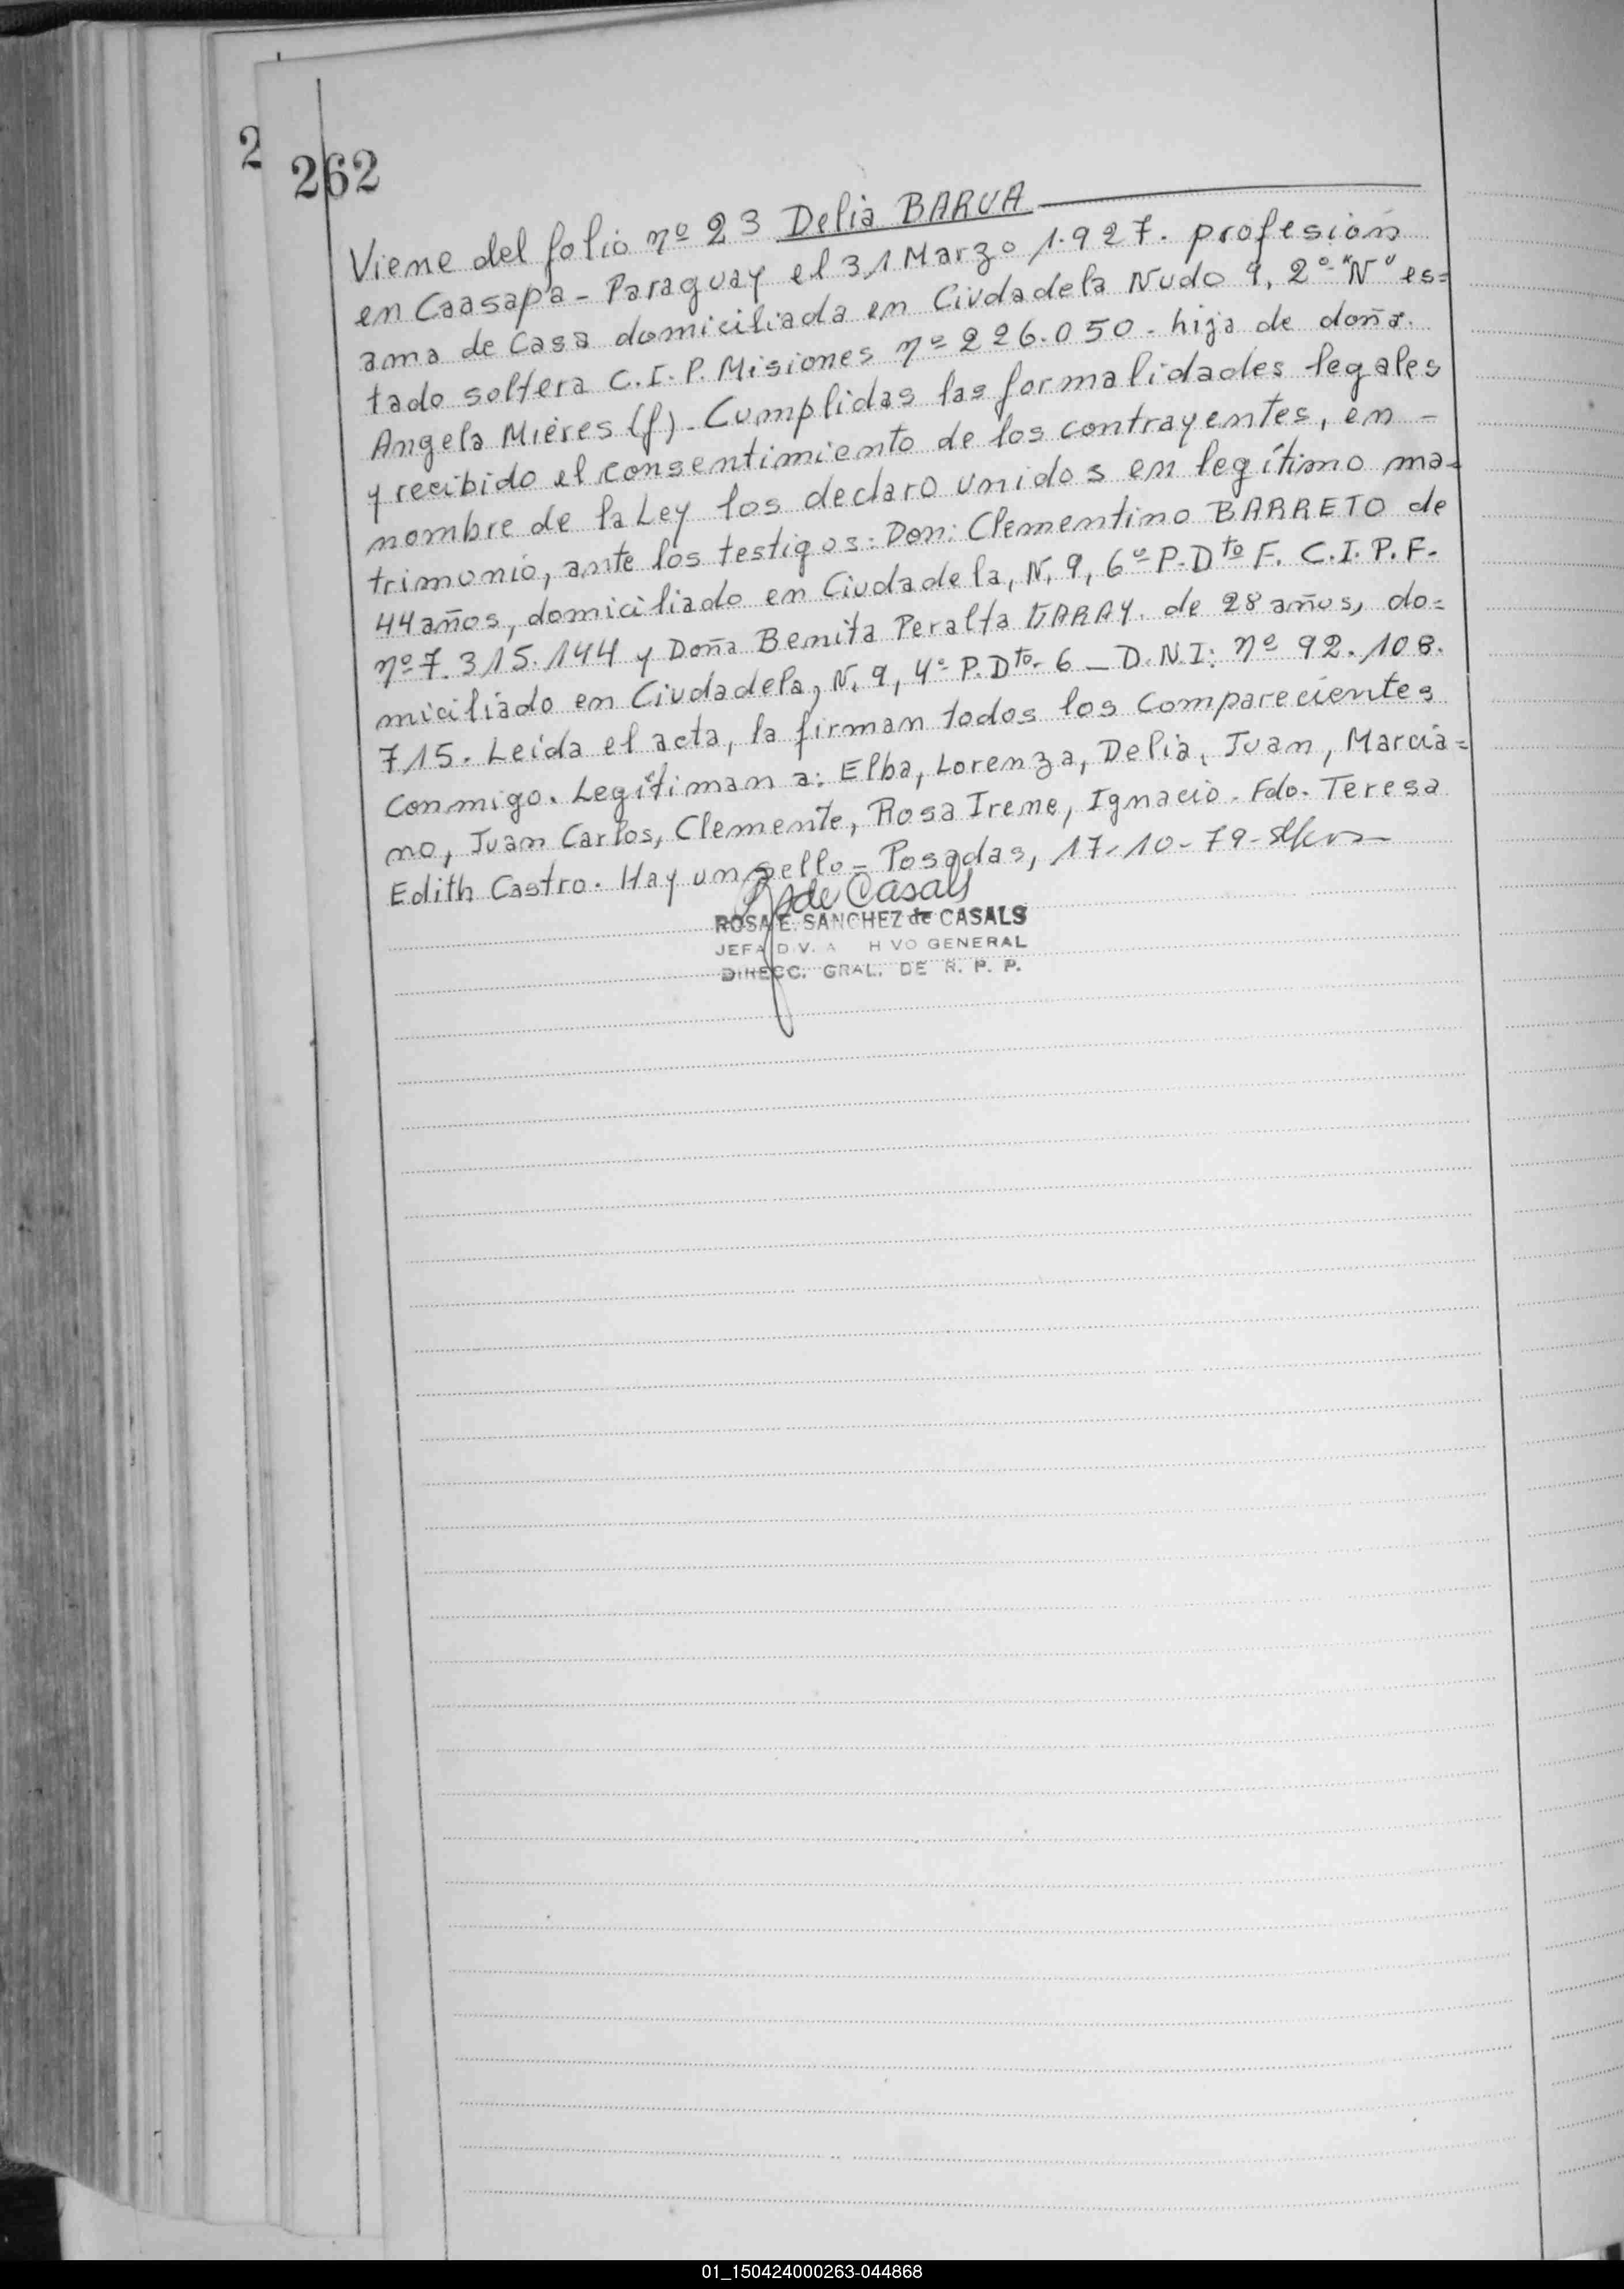 2
262
Viene del folio nº 23 Delia BARUA
en Caasapa - Paraguay el 31 Marzo 1.927. profesión
ama de Casa domiciliada en Ciudadela Nudo 9, 2º "N" es=
tado soltera C.I.P. Misiones nº 226.050 - hija de doña
Angela Mieres (f). Cumplidas las formalidades legales
y recibido el consentimiento de los contrayentes, en -
nombre de la Ley los declaro unidos en legítimo ma-
trimonio, ante los testigos: Don: Clementino BARRETO de
44 años, domiciliado en Ciudadela, N, 9, 6º P. Dto F. C.I.P.F.
nº 7.315.144 y Doña Benita Peralta GARAY. de 28 años, do=
miciliado en Ciudadela, N, 9, 4º P. Dto. 6 - D.N.I: nº 92.108.
715. Leída el acta, la firman todos los comparecientes
conmigo. Legitiman a: Elba, Lorenza, Delia, Juan, Marcia=
no, Juan Carlos, Clemente, Rosa Irene, Ignacio. Fdo. Teresa
Edith Castro. Hay un sello - Posadas, 17-10-79-
de Casals
ROSA E. SANCHEZ de CASALS
JEFA DIV. A H VO GENERAL
DIRECC. GRAL. DE R. P. P.
01_150424000263-044868